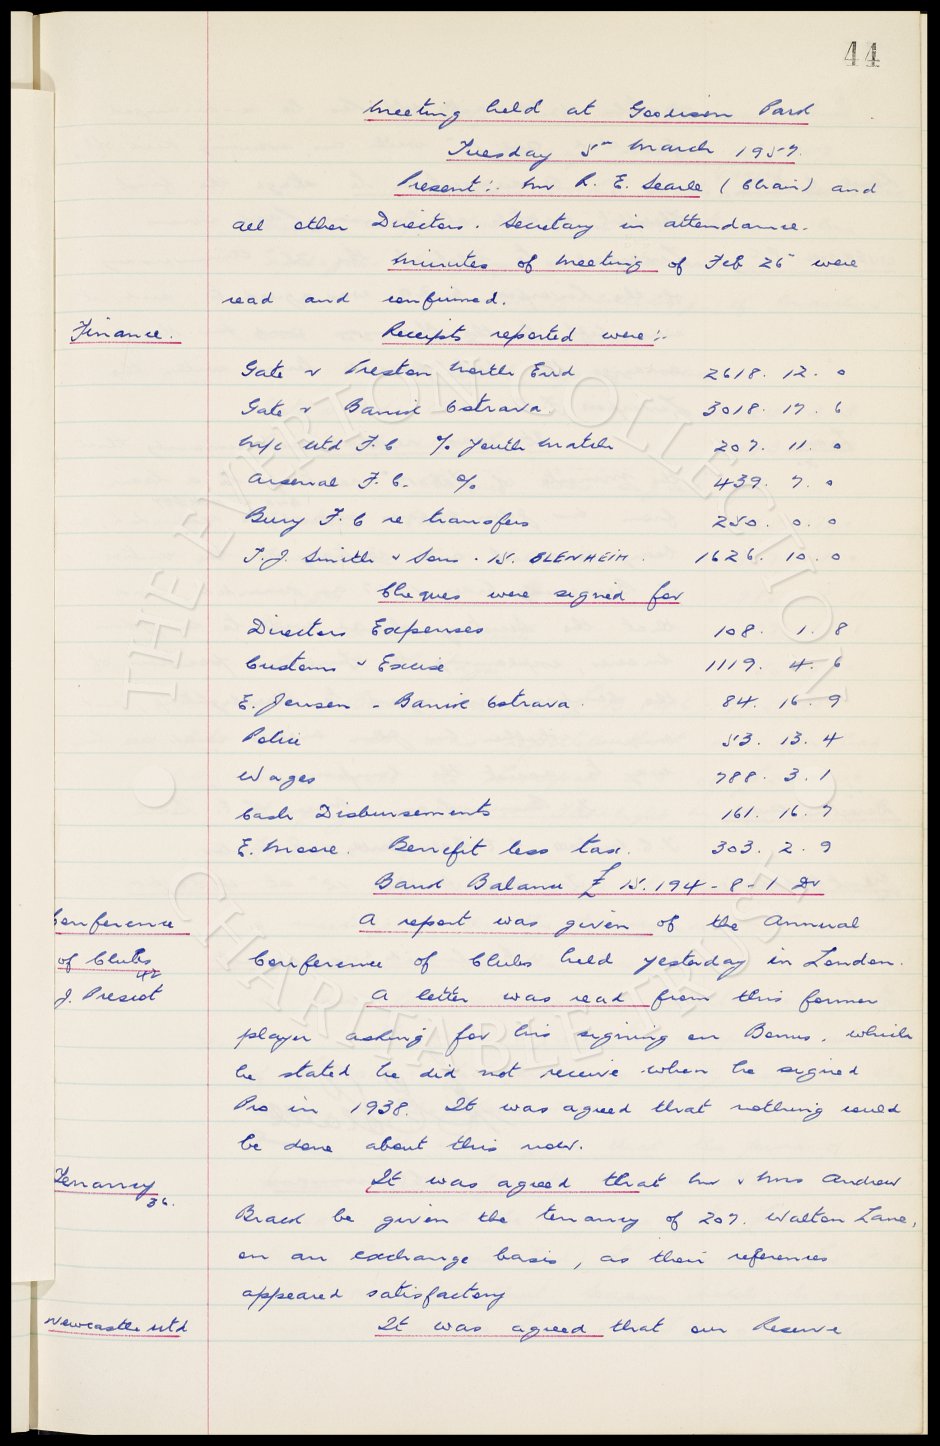 44
Meeting held at Goodison Park
Tuesday 5th March 1957.
Present:- Mr R. E. Searle (Chair) and
all other Directors. Secretary in attendance.
Minutes of Meeting of Feb 26th were
read and confirmed.
Finance. Receipts reported were:-
Gate v Preston North End 2618. 12. 0
Gate v Banik Ostrava. 3018. 17. 6
M/c Utd F.C % Youth Match 207. 11. 0
Arsenal F.C. % 439. 7. 0
Bury F.C re transfers 250. 0. 0
T.J. Smith & Son. 15. BLENHEIM. 1626. 10. 0
Cheques were signed for
Directors Expenses 108. 1. 8
Customs & Excise 1119. 4. 6
E. Jensen - Banik Ostrava. 84. 16. 9
Police 53. 13. 4
Wages 788. 3. 1
Cash Disbursements 161. 16. 7
E. Moore. Benefit less tax. 303. 2. 9
Bank Balance £15.194-8-1 Dr
Conference A report was given of the Annual
of Clubs Conference of Clubs held yesterday in London.
42
J. Prescot A letter was read from this former
player asking for his signing on Bonus, which
he stated he did not receive when he signed
Pro in 1938. It was agreed that nothing could
be done about this now.
Tenancy It was agreed that Mr & Mrs Andrew
36.
be given the tenancy of 207. Walton Lane,
on an exchange basis, as their references
appeared satisfactory
Newcastle Utd It was agreed that our Reserve
THE EVERTON COLLECTION
CHARITABLE TRUST